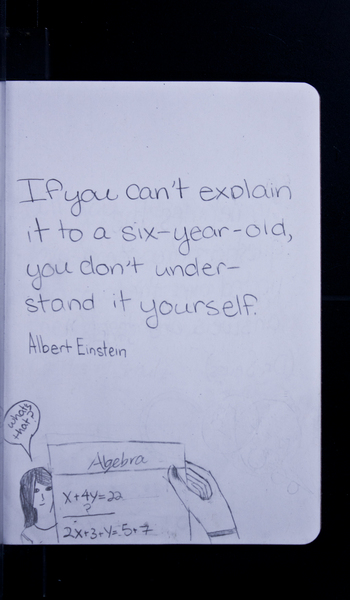 If you can't explain
it to a six-year-old,
you don't under-
stand it yourself.
Albert Einstein
what's
that?
Algebra
x+4y=22
?
2x+3+y=.5+7